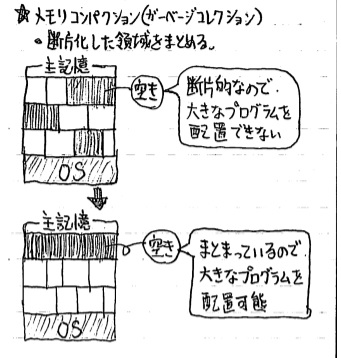 ☆メモリコンパクション(ガーベージコレクション)
・断片化した領域をまとめる。
主記憶
空き
断片的なので
大きなプログラムを
配置できない
OS
主記憶
空き
まとまっているので
大きなプログラムを
配置可能
OS